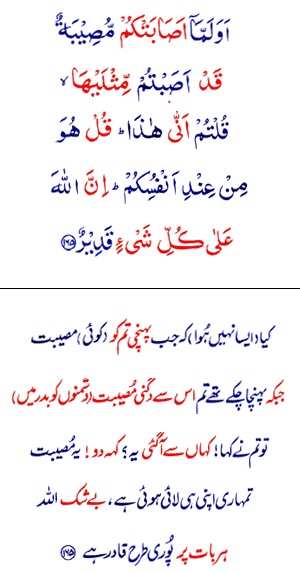 اَوَلَمَّاۤ اَصَابَتْكُمْ مُّصِیْبَةٌ
قَدْ اَصَبْتُمْ مِّثْلَیْهَا ۙ
قُلْتُمْ اَنّٰی هٰذَا ؕ قُلْ هُوَ
مِنْ عِنْدِ اَنْفُسِكُمْ ؕ اِنَّ اللّٰهَ
عَلٰی كُلِّ شَیْءٍ قَدِیْرٌ ﴿۱۶۵﴾
کیا (ایسا نہیں ہُوا) کہ جب پہنچی تم کو (کوئی) مصیبت
جبکہ پہنچا چکے تھے تم اس سے دُگنی مُصیبت (دشمنوں کو بدر میں)
تو تم نے کہا! کہاں سے آگئی یہ؟ کہہ دو! یہ مُصیبت
تمہاری اپنی ہی لائی ہوئی ہے، بے شک اللہ
ہر بات پر پُوری طرح قادر ہے ﴿۱۶۵﴾